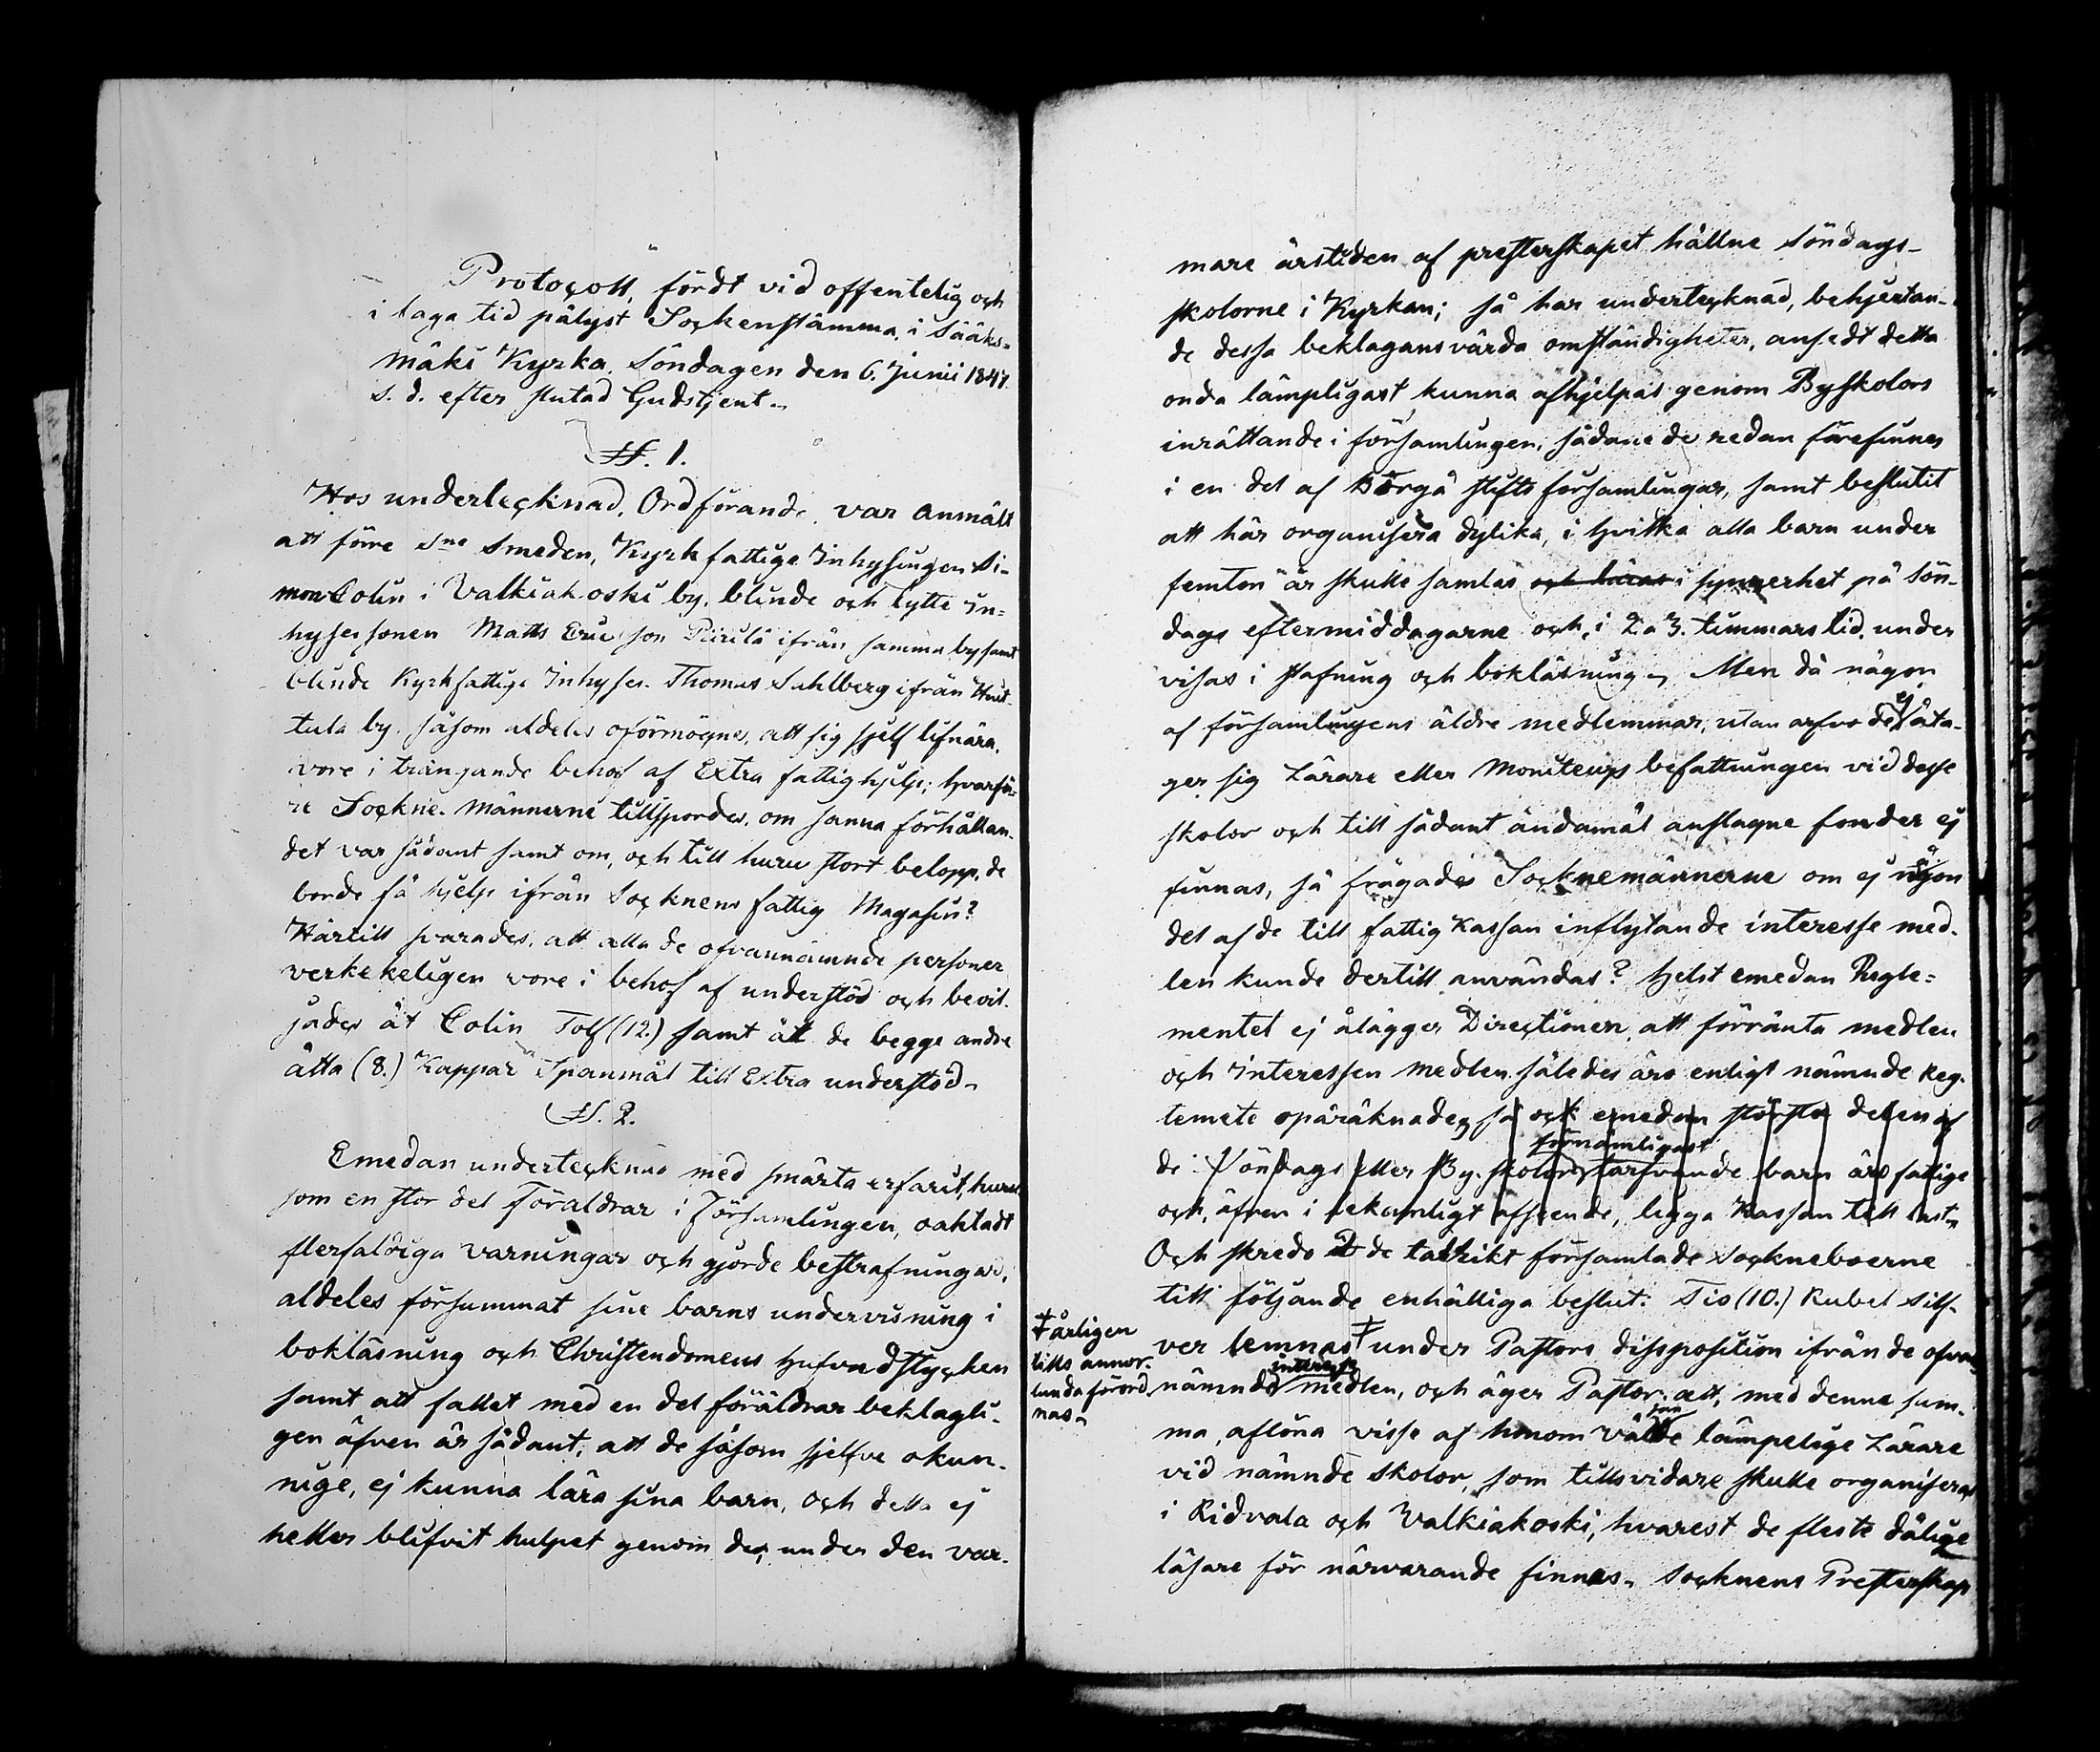 Protocoll, fördt vid offentelig och
i laga tid pålyst Sockenstämma, i Sääks-
mäki Kyrka. Söndagen den 6. Junii 1847.
s. d. efter slutad Gudstjenst.
§. 1.
Hos undertecknad, Ordförande, var anmäld
att förre Sne Smeden, Kyrkfattige Inhysingen Si-
mon Colin i Valkiakoski by, blinde och lytte In-
hysessonen Matts Ericsson Piirilä ifrån samma by samt
blinde Kyrkfattige Inhyses. Thomas Sahlberg ifrån Huit-
tula by, såsom aldeles oförmögne, att sig sjelf lifnära,
vore i trängande behof af Extra fattighjelp; hvarfö-
re Sockne-Männerne tillspordes, om sanna förhållan-
det var sådant samt om, och till huru stort belopp, de
borde få hjelp ifrån Socknens fattig Magasin?
Härtill svarades, att alla de ofvannämnde personer
verkeligen vore i behof af understöd och bevil-
jades åt Colin Tolf (12.) samt åt de begge andre
åtta (8.) Kappar Spanmål till Extra understöd.
§. 2.
Emedan undertecknad med smärta erfarit, huru-
som en stor del Föräldrar i Församlingen, oaktadt
flerfaldiga varningar och gjorde bestrafningar,
aldeles försummat sine barns undervisning i
bokläsning och Christendomens hufvudstycken
samt att fallet med en del föräldrar beklagli-
gen äfven är sådant, att de såsom sjelfve okun-
nige, ej kunna lära sina barn, och detta ej
heller blifvit hulpet genom de, under den var-
mare årstiden af presterskapet hållne Söndags-
skolorne i Kyrkan; så har undertecknad, behjertan-
de dessa beklagansvärda omständigheter, ansedt detta
onda lämpligast kunna afhjelpas genom Byskolors
inrättande i församlingen, sådane de redan förefinnes
i en del af Borgå stifts församlingar, samt beslutit
att här organisera dylika, i hvilka alla barn under
femton år skulle samlas och läras i synnerhet på Sön-
dags eftermiddagarne och, i 2 a 3. timmars tid, under-
visas i stafning och bokläsning. Men då någon
af församlingens äldre medlemmar, utan arfvode, ej åta-
ger sig Lärare eller Moniteurs befattningen vid desse
skolor och till sådant ändamål anslagne fonder ej
finnas, så frågades Socknemännerne om ej någon
del af de till fattig Kassan inflytande interesse med-
len kunde dertill användas? helst emedan Regle-
mentet ej ålägger Directionen, att förränta medlen
och Interessen medlen således äro enligt nämnde Reg-
lemete opåräknade, så ock emedan största delen af
förnämligast
de Söndags eller By-skolors tarfvande barn äro fattige
och, äfven i lekamligt afseende, ligga Kassan till last.
Och skredo de talrikt församlade Sockneboerne
till följande enhälliga beslut: Tio (10.) Rubel Silf-
ver lemnas ‡ under Pastors disposition ifrån de ofvan-
‡ årligen
tills annor-
lunda förord-
nas.
interesse
nämnde medlen, och äger Pastor, att, med denna sum-
ma, aflöna visse af honom valde lämpelige Lärare
vid nämnde skolor, som tillsvidare skulle organiseras
i Ridvala och Valkiakoski, hvarest de fleste dålige
läsare för närvarande finnes. Socknens Presterskap